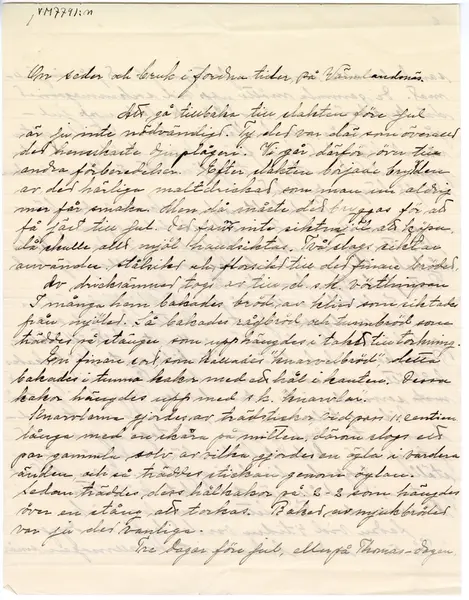 VM7791:11
Om seder och bruk i fordna tider på Värmlandsnäs.
Att gå tillbaka till slakten före jul
är ju inte nödvändigt. Ty det var där som överallt
det hemskaste djurplågeri. Vi går därför över till
andra förberedelser. Efter slakten började brygden
av det härliga maltdrickat som man nu aldrig
mer får smaka. Men då måste det bryggas för att
få jäst till jul. Det fanns inte siktmjöl att köpa
då skulle allt mjöl handsiktas. Två slags siktar
användes. Hålsikt och florsikt till det finare brödet.
Av dricksrummet togs av till d. s. k. vörtlimpan
I många hem bakades bröd av klid som siktats
från mjölet. Så bakades rågbröd och tunnbröd som
träddes på stänger som upphängdes i taket till torkning.
En finare sort som kallades "knarrelbröd" detta
bakades i tunna kakor med ett hål i kanten. Dessa
kakor hängdes upp med s. k. knarvlar.
Knarvlarna gjordes av trästickor vid pass 11 centim
långa med en skåra på mitten, därom slogs ett
par gammla solv av vilka gjordes en ögla i vardera
änden och så träddes stickan genom öglan.
sedan träddes dess hålkakor på 2-2 som hängdes
över en stång att torkas. Baket av mjukbrödet
var ju det vanliga.
Tre dagar före jul, eller på Thomas-dagen